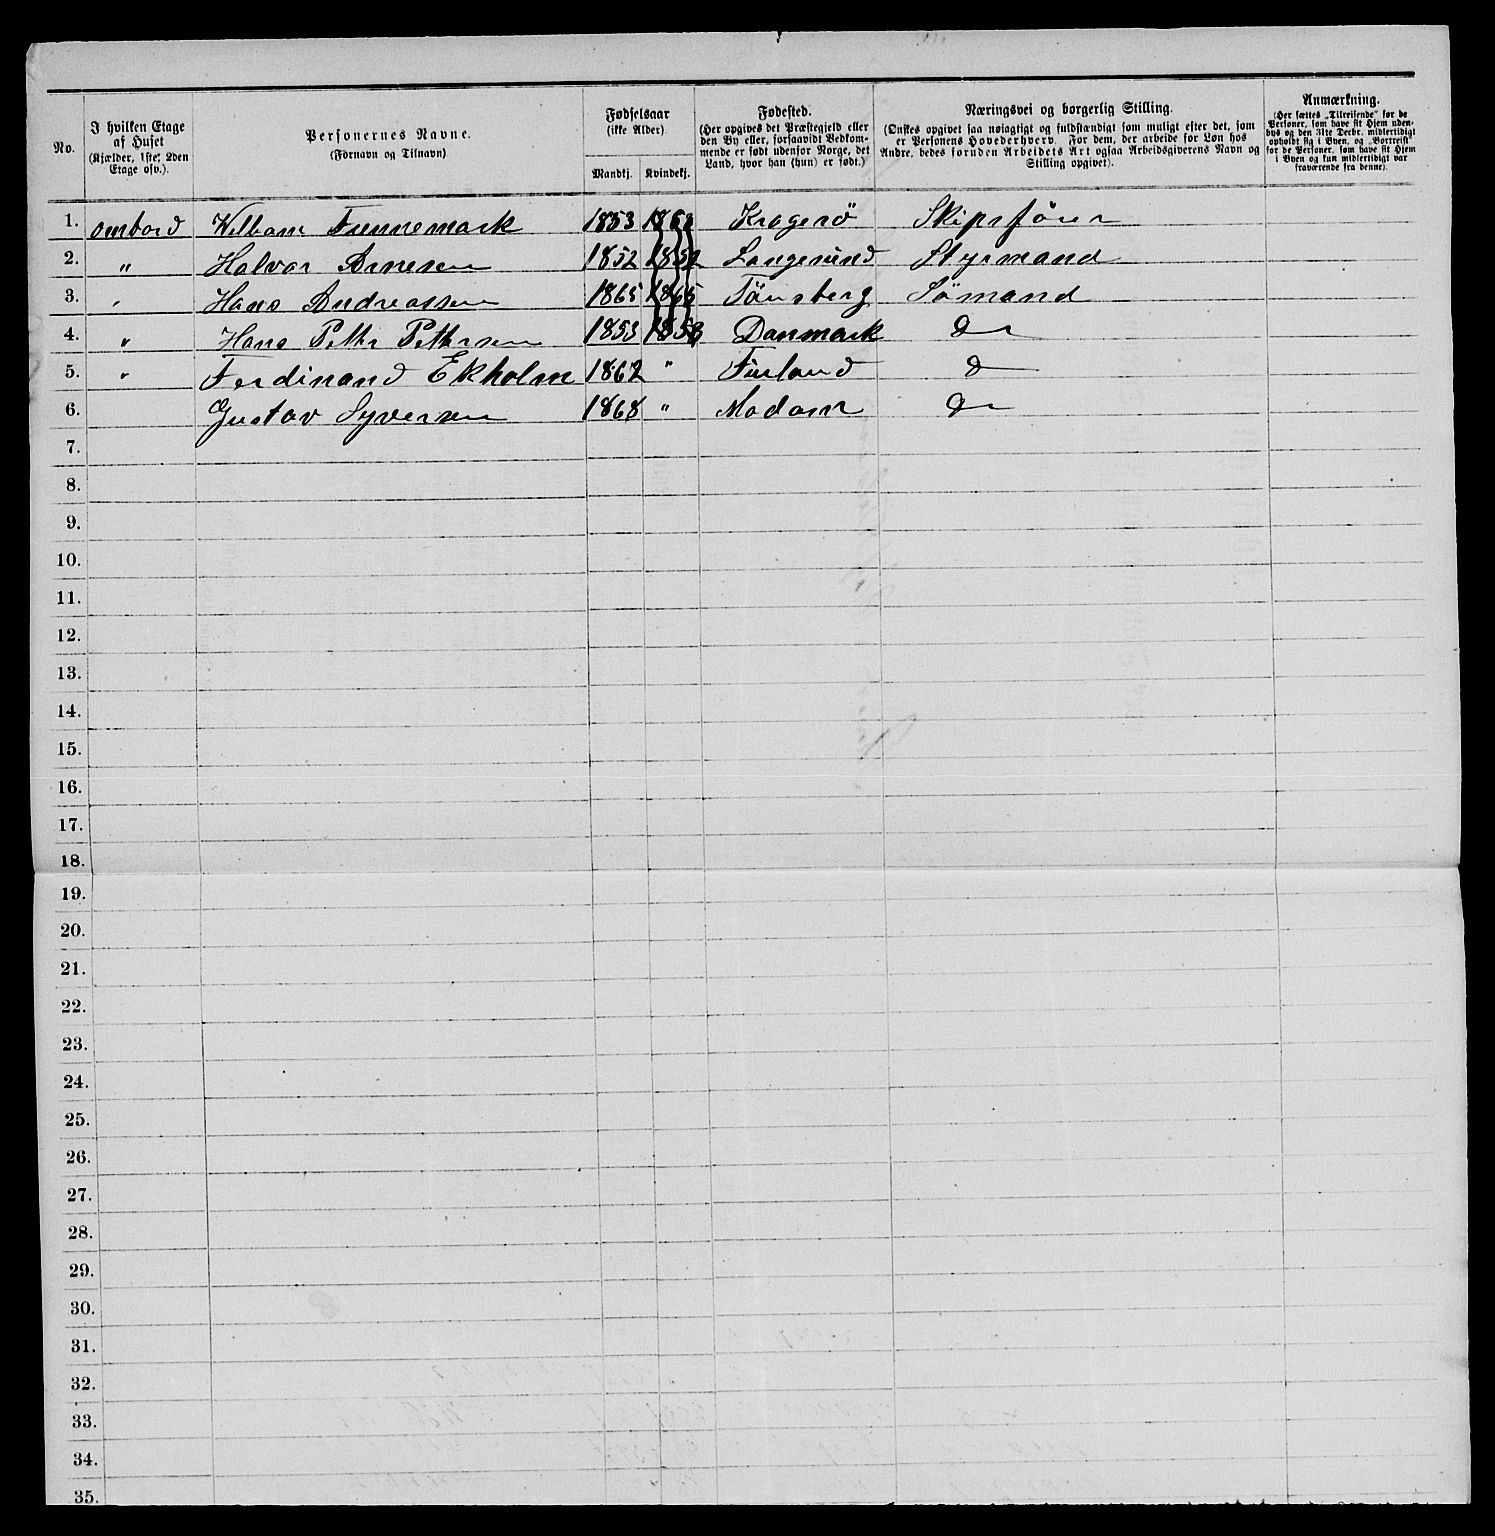 No.
I hvilken Etage
af Huset
(Kjælder, 1ste, 2den
Etage osv.).
Personernes Navne.
(Fornavn og Tilnavn)
Fødselsaar
(ikke Alder).
Mandkj.
Kvindekj.
Fødested.
(Her opgives det Præstegjeld eller
den By eller, forsaavidt Vedkom-
mende er født udenfor Norge, det
Land, hvor han (hun) er født.)
Næringsvei og borgerlig Stilling.
(Ønskes opgivet saa nøiagtigt og fuldstændigt som muligt efter det, som
er Personens Hovederhverv. For dem, der arbeide for Løn hos
Andre, bedes foruden Arbeidets Art ogsaa Arbeidsgiverens Navn og
Stilling opgivet).
Anmærkning.
(Her sættes „Tilreisende" for de
Personer, som have sit Hjem uden-
bys og den 31te Decbr. midlertidigt
opholdt sig i Byen, og „Bortreist"
for de Personer, som have sit Hjem
i Byen og kun midlertidigt var
fraværende fra denne).
1. ombord Fennemark 1853 Kragerö Skipsförer
2. „ Halvor Arnesen 1852 1852 Langesund Styrmand
3. „ Hans Andreassen 1865 1865 Tönsberg Sömand
4. „ Hans Petter Pettersen 1853 1853 Danmark Do
5. „ Ferdinand Ekholm 1862 „ Finland Do
6. Gustav Syversen 1868 „
7.
8.
9.
10.
11.
12.
13.
14.
15.
16.
17.
18.
19.
20.
21.
22.
23.
24.
25.
26.
27.
28.
29.
30.
31.
32.
33.
34.
35.